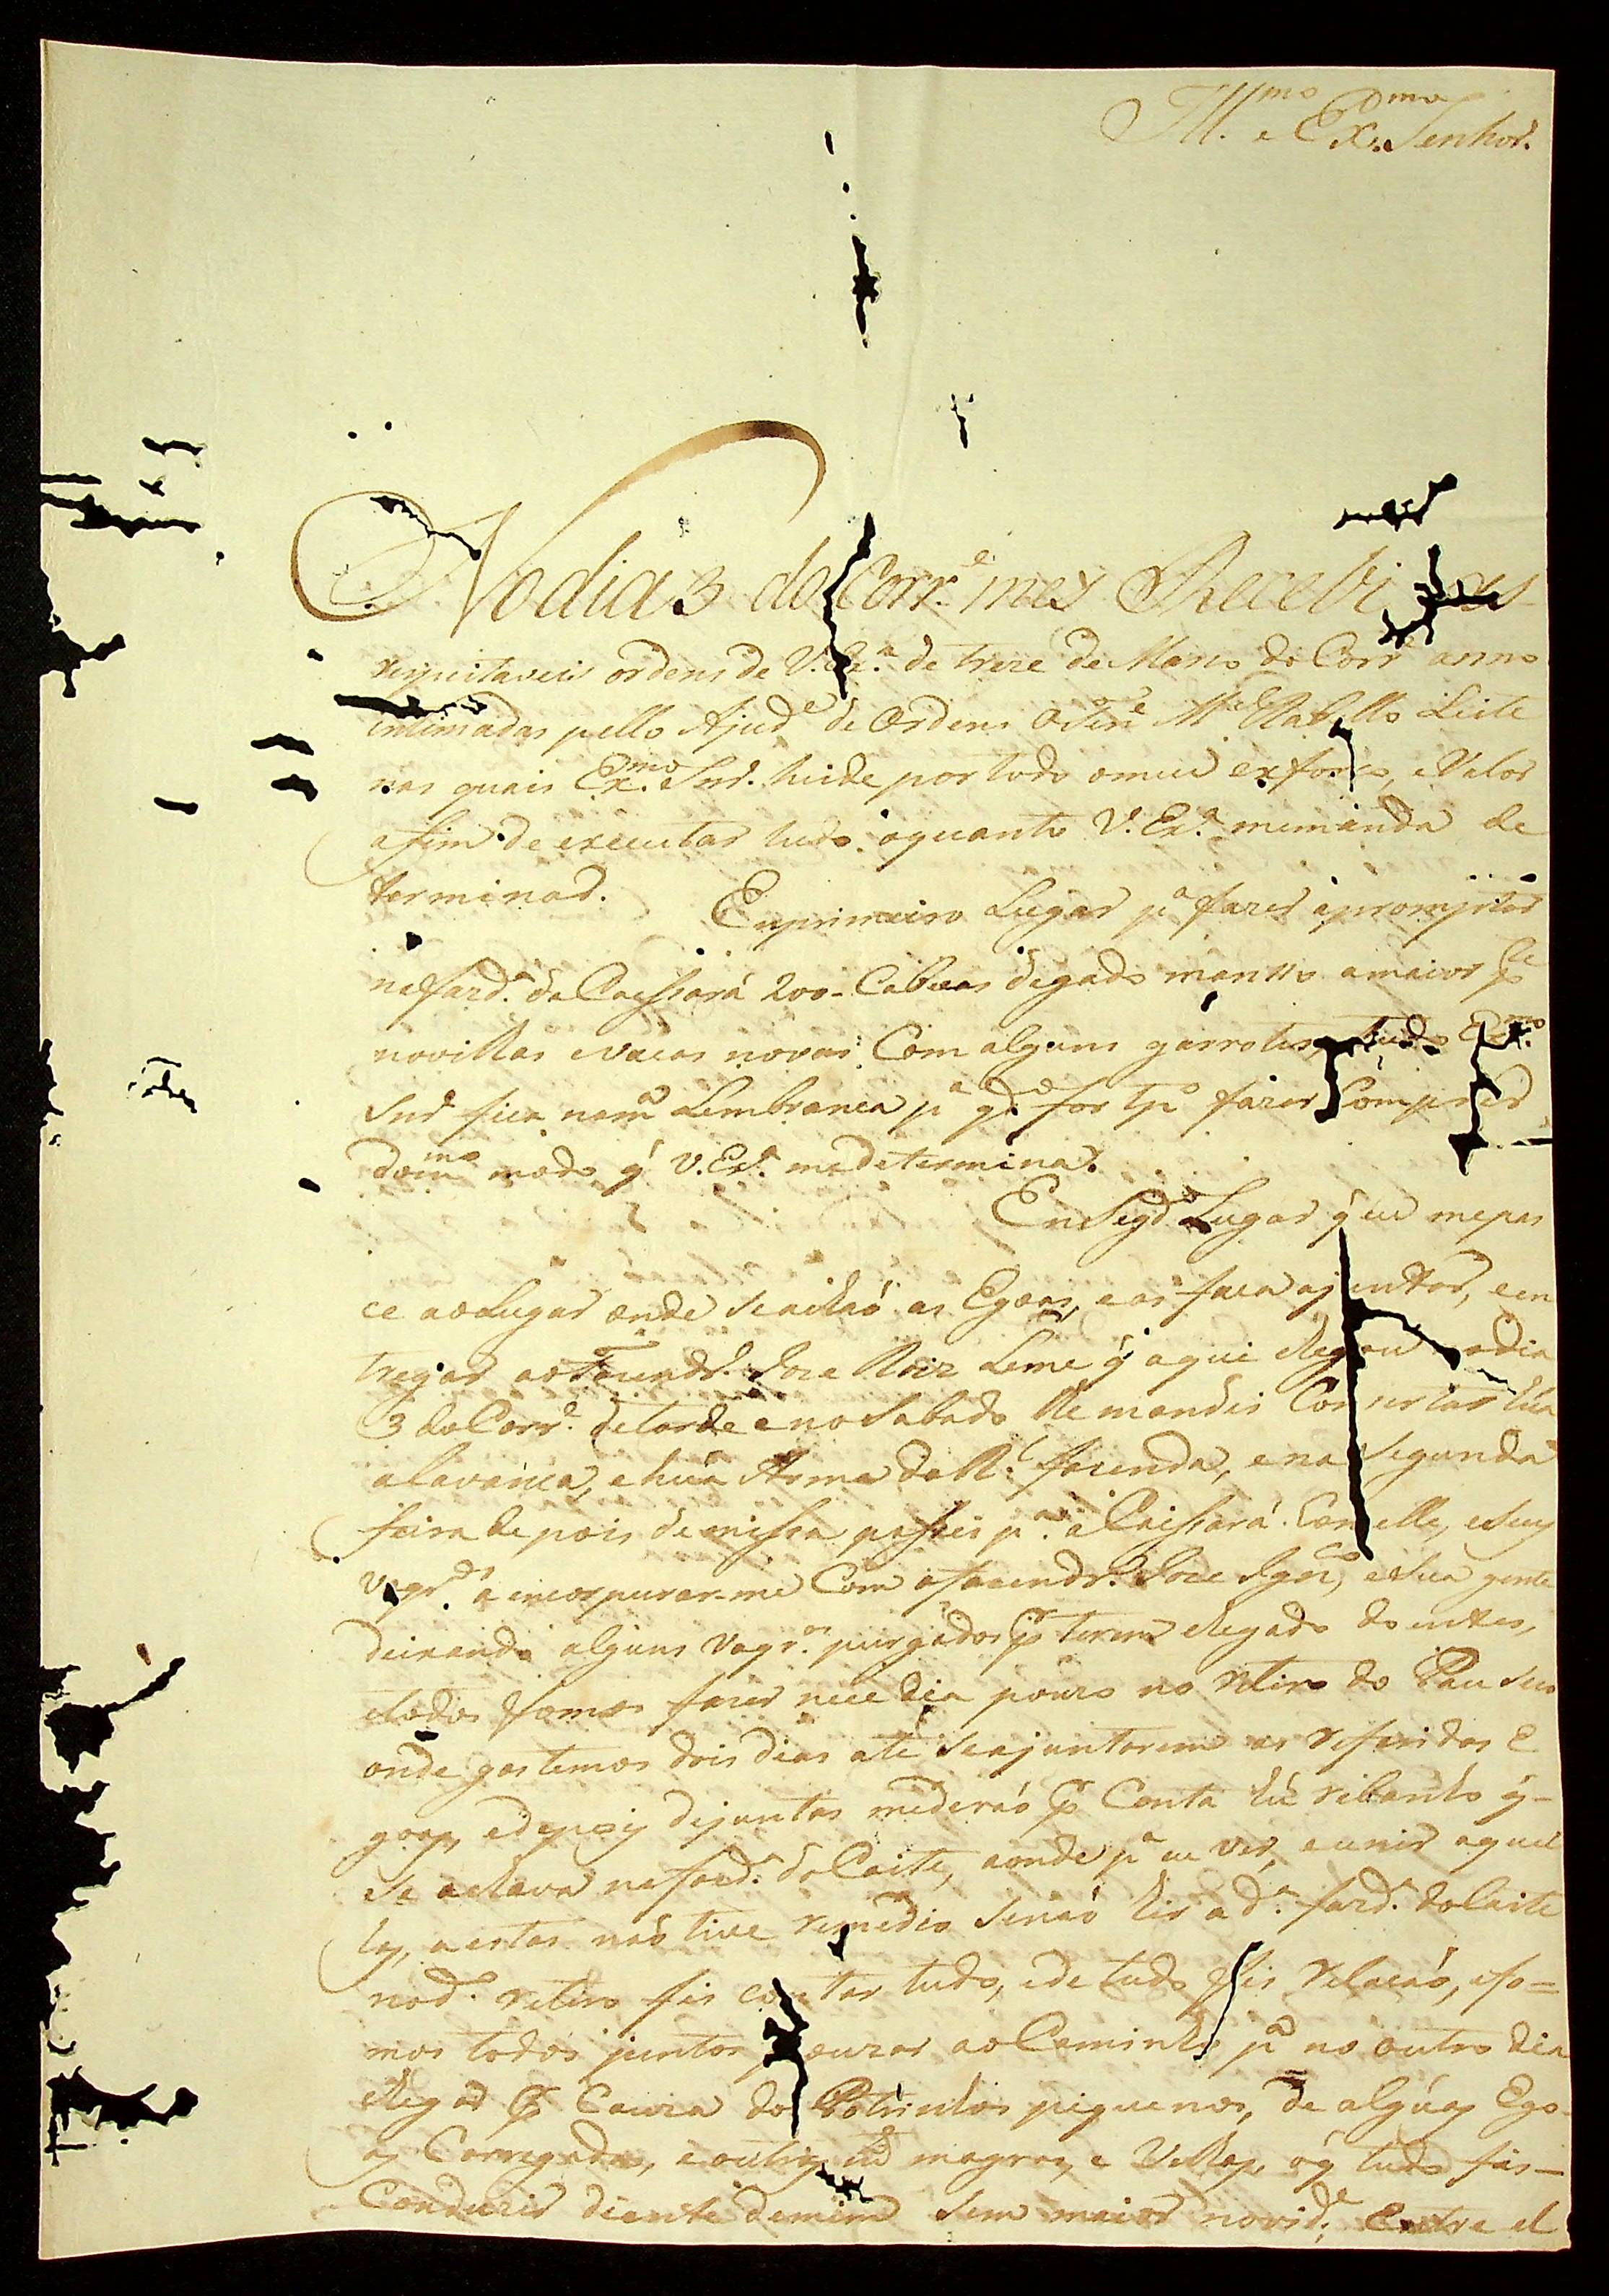 Ill.mo e Ex.mo Senhor.
No dia 3 do Corr.e mes Recebi as
respeitaveis ordens de V. Ex.a de treze de Marso do Corr.e anno
intimadas pello Ajud.e de Ordens o Ten.e M.el Rabello Leite
nas quais Ex.mo Snr. hirde por todo omeu exforso, e Valor
afim de executar tudo oquanto V. Ex.a memanda de
terminar. Enprimeiro Lugar p.a fazer apromptar
nafazd.a da Caissará 200- Cabesas degado manso amaior p.te
novilhas evacas novas Com alguns garrotes, tudo Ex.mo
Snr. fica nam.a Lembransa p.a q.do for tp.o fazer Comprir
dom.mo modo q̃ V. Ex.a medetermina.
EnSegd.o Lugar q̃ eu mepas
ce aoLugar onde seachaó as Egoas, eas fasa ajuntar, een
tregar ao Fazendr.o Joze Roiz Leme q̃ aqui chegou odia
3 do Corr.e detarde enoSabado lhe mandei Consertar hũa
alavanca, ehũa Arma da R.l fazenda, ena Segunda
feira depois demissa passei p.a a Caissará Com elle, eseus
Vaqr.os a incorpurar-me Com ofazendr.o Joze Ign.co, esua gente
deixando alguns Vaqr.os purgados p.r terem chegado doentes,
etodos fomos fazer nece dia pouzo no Retiro do Pau seco
onde gastemos dois dias ate seajuntarem as Referidas E
goas, edepois dejuntas mederaó p.r Conta hũ rebanho q̃-
Se achava nafazd.a do Caite, aonde p.a eu ver, eunir aquel
las, aestas naó tive remedio senaó hir ad.a fazd.a doCaite
nod.o retiro fis contar tudo, ede tudo fis Relasaó, efo=
mos todos juntos pouzar aoCaminho p.a no outro dia
chegar p.r Cauza dos Potrinhos piquenos, de algũas Ego-
as Carregadas, eoutras mt.o magras, e Velhas, oq̃ tudo fis-
Conduzir diante demim sem maior novid.e Entre el